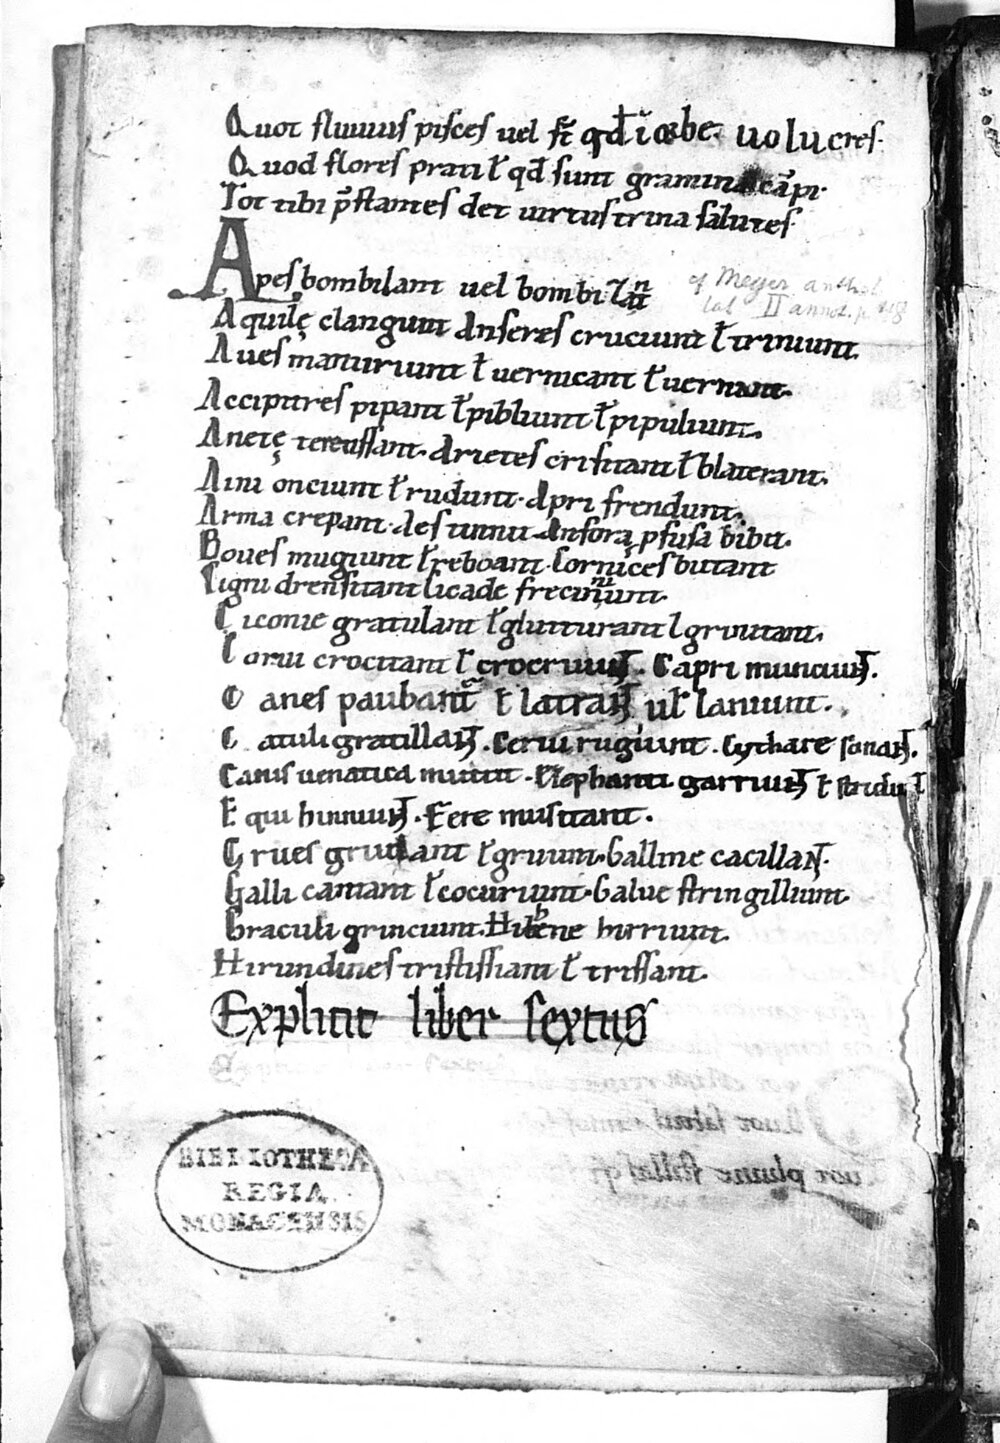 Quot fluuius pisces uel st̄ qd̄ ī orbe. uolucres.
Quod flores prati ł qd̄ sunt gramina cāpi.
Tot tibi p̄stantes det uirtus trina salutes.
Apes bombilant uel bombizant
cf Meyer anthol
lat II annot. p.
Aquilę clangunt Anseres cruciunt ł triniunt.
Aues manturiunt ł uernicant ł uernant.
Accipitres pipant ł pibliunt ł pipuliunt.
Anetę tetenssant. Arietes crisitant ł blaterant.
Asini onciunt ł rudunt. Apri frendunt.
Arma crepant. Aes tinnit. Anfora pfusa bibit.
Boues mugiunt ł reboant. Cornices butant
Cigni drensitant Cicade frecinniunt.
Ciconie gratulant ł glutturant l groutant.
Corui crocitant ł crocciunt. Capri munciunt.
Canes paubant ł latrant ul̄ laniunt.
Catuli gratillant. Cerui rugiunt. Cythare sonant.
Canis uenatica muttit. Elephanti garriunt ł stridunt
Equi hinniunt. Fere musitant.
Grues gruulant ł gruunt. Galline cacillant.
Galli cantant ł cocuriunt. Galue stringilliunt.
Graculi grincuint. Hibene hirriunt.
Hirundines tristissiant ł trissant.
Explicit liber sextus
BIBLIOTHECA
REGIA
MONACENSIS